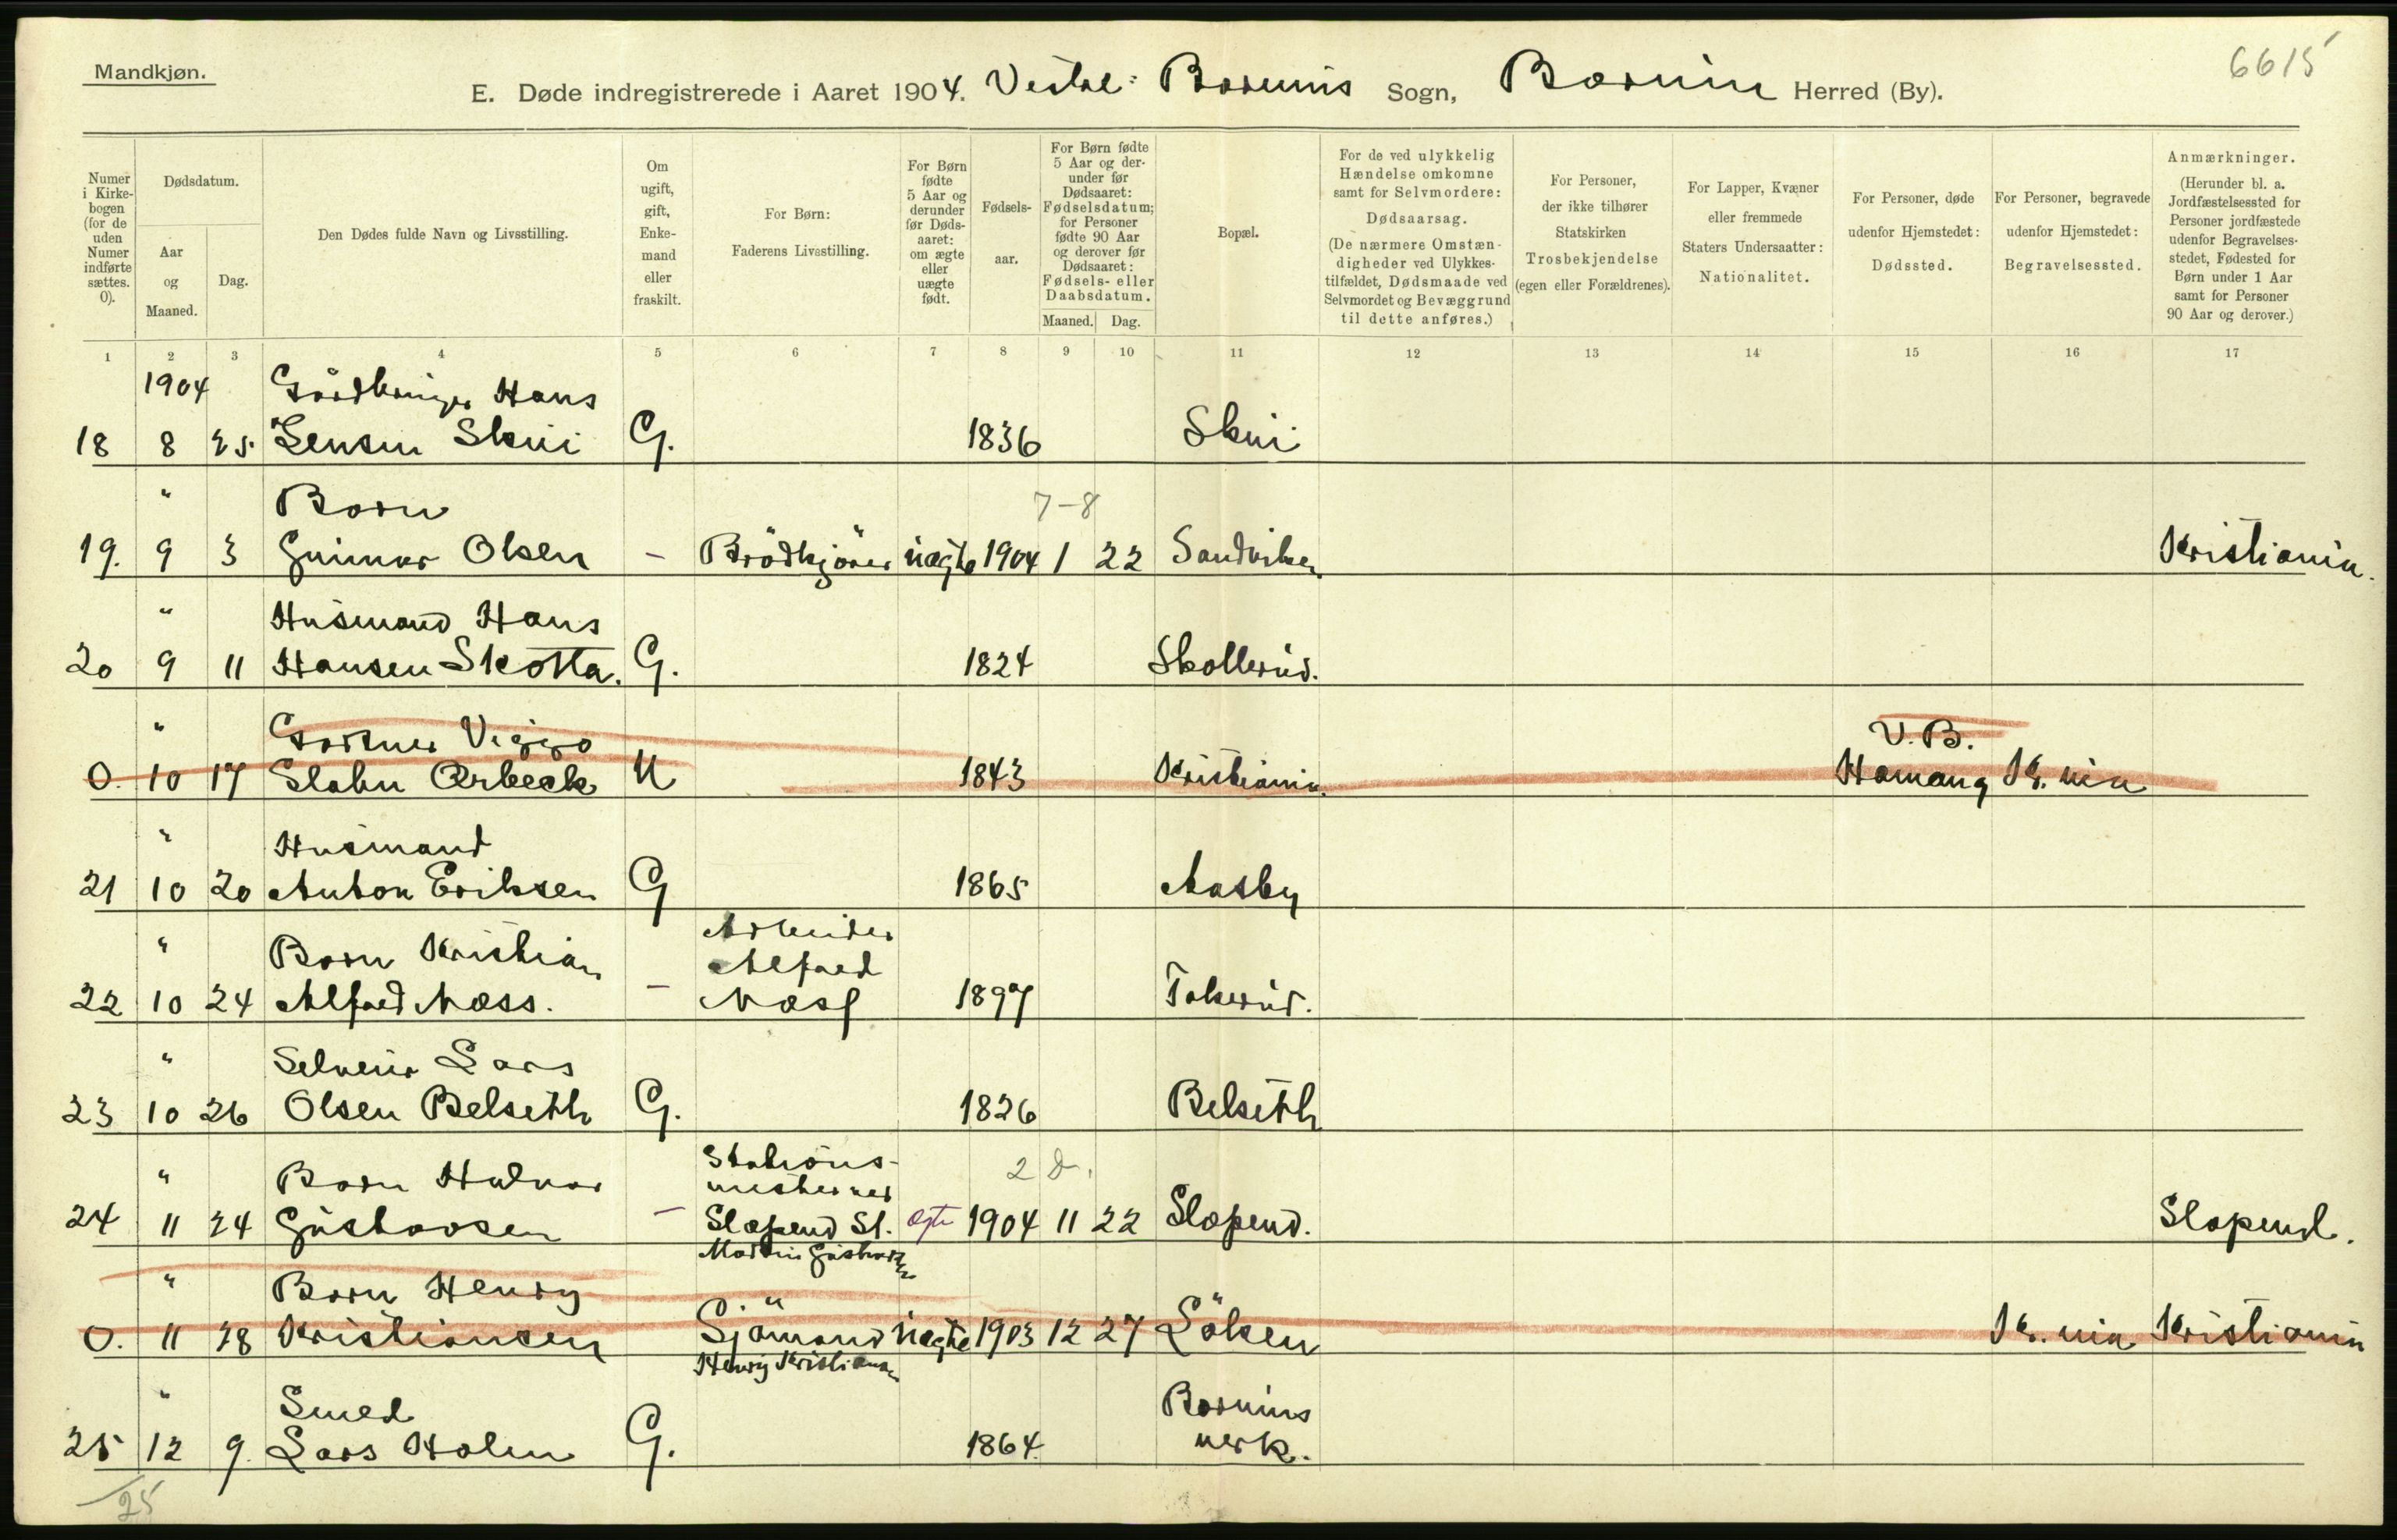 Mandkjøn.
6615
E. Døde indregistrerede i Aaret 1904. Vestre Bærums Sogn, Bærum Herred (By).
Numer i Kirkebogen (for de uden Numer indførte sættes. 0).
Dødsdatum.
Aar og Maaned.
Dag.
Den Dødes fulde Navn og Livsstilling.
Om ugift, gift, Enkemand eller fraskilt.
For Børn: Faderens Livsstilling.
For Børn fødte 5 Aar og derunder før Dødsaaret: om ægte eller uægte født.
Fødselsaar.
For Børn fødte 5 Aar og derunder før Dødsaaret: Fødselsdatum; for Personer fødte 90 Aar og derover før Dødsaaret: Fødsels- eller Daabsdatum.
Maaned. Dag.
Bopæl.
For de ved ulykkelig Hændelse omkomne samt for Selvmordere: Dødsaarsag. (De nærmere Omstændigheder ved Ulykkestilfældet, Dødsmaade ved Selvmordet og Bevæggrund til dette anføres.)
For Personer, der ikke tilhører Statskirken Trosbekjendelse (egen eller Forældrenes).
For Lapper, Kvæner eller fremmede Staters Undersaatter: Nationalitet.
For Personer, døde udenfor Hjemstedet: Dødssted.
For Personer, begravede udenfor Hjemstedet: Begravelsessted.
Anmærkninger. (Herunder bl. a. Jordfæstelsessted for Personer jordfæstede udenfor Begravelsesstedet, Fødested for Børn under 1 Aar samt for Personer 90 Aar og derover.)
1 2 3 4 5 6 7 8 9 10 11 12 13 14 15 16 17
1904 Gårdbruger Hans
18 8 25 Jensen Skui G. 1836 Skui
" Barn 7-8
19. 9 3 Gunnar Olsen - Brödkjörer uægte 1904 1 22 Sandviken Kristiania.
" Husmand Hans
20 9 11 Hansen Skotta. G. 1824 Skollerud.
" Gartner Viggo V. B.
0. 10 17 Ørbeck U 1843 Kristiania. Hamang Kr. nia
" Husmand
21 10 20 Anton Eriksen G 1865 Aasby
" Barn Kristian Arbeider Alfred
22 10 24 Alfred Næss. - Næss 1897 Tokerud.
" Selveier Lars
23 10 26 Olsen Belseth G. 1826 Belseth
" Barn Halvor Stations- 2 d.
mester ved
24 11 24 Gustavsen - Slæpend St. ægte 1904 11 22 Slæpend. Slæpend.
Martin Gustavsen
" Barn Henry
0. 11 28 Kristiansen Sjömand uægte 1903 12 27 Löken Kr. nia Kristiania
Henry Kristiansen
" Smed Bærums
25 12 9. Lars Holm G. 1864. verk.
25